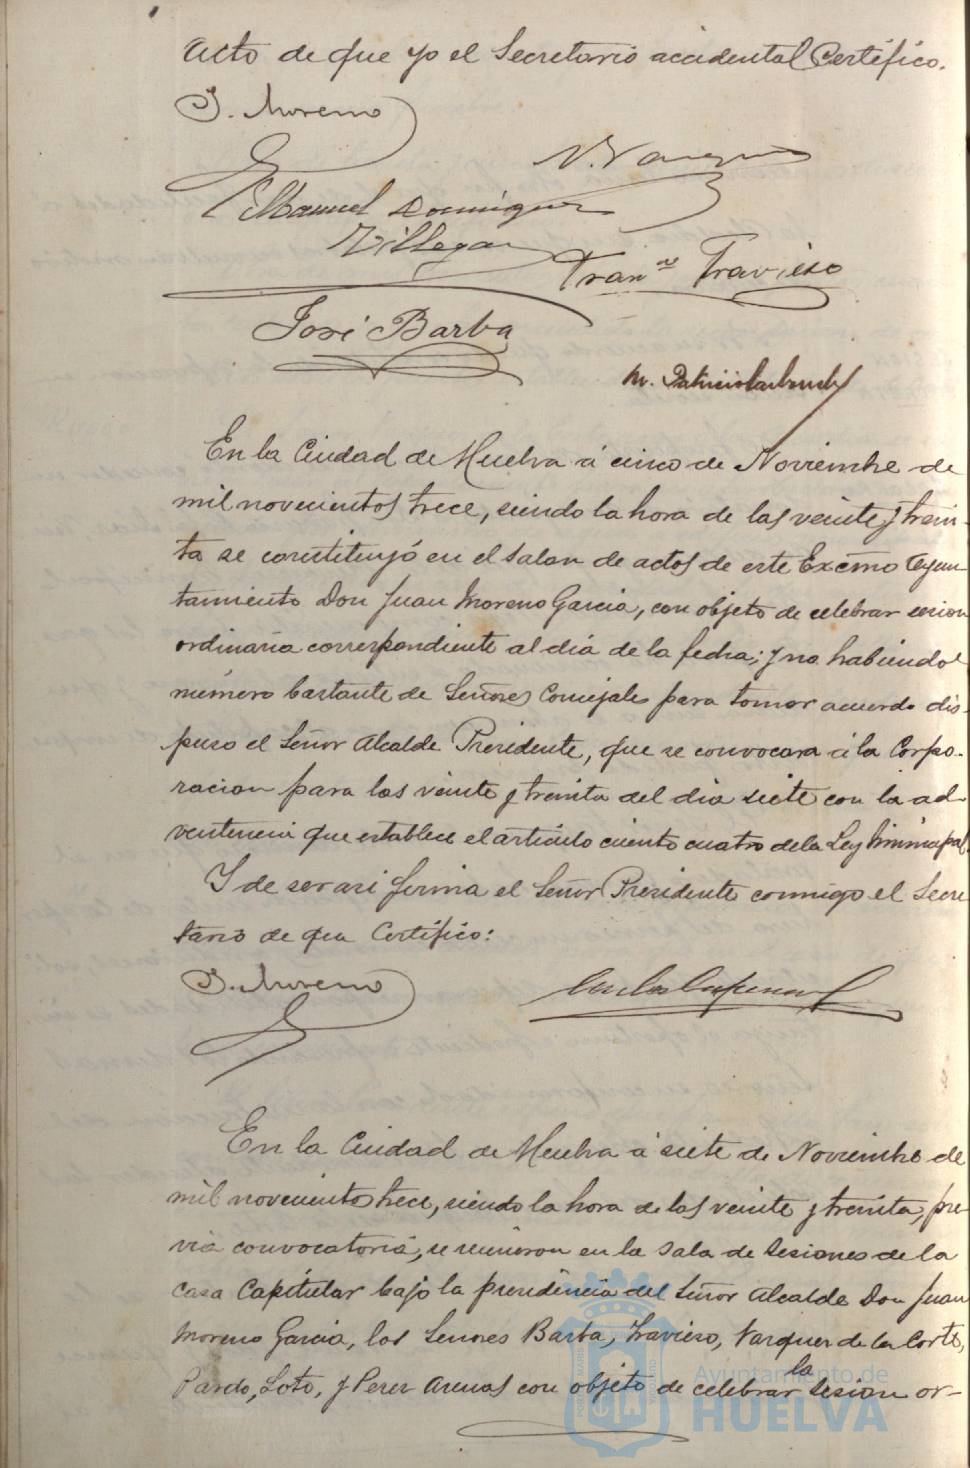 acto de que yo el Secretario accidental Certifico.
J. Moreno
N. Vazquez
Manuel Dominguez
Villegas
Fran.co Travieso
José Barba
M. Patricio
En la Ciudad de Huelva á cinco de Noviembre de
mil novecientos trece, siendo la hora de las veinte y trein-
ta se constituyó en el salon de actos de este Excmo Ayun-
tamiento Don Juan Moreno Garcia, con objeto de celebrar sesion
ordinaria correspondiente al dia de la fecha; y no habiendo
número bastante de Señores Concejales para tomar acuerdo dis-
puso el Señor Alcalde Presidente, que se convocara á la Corpo-
racion para las veinte y treinta del dia siete con la ad-
vertencia que establece el articulo ciento cuatro de la Ley Municipal.
Y de ser asi firma el Señor Presidente conmigo el Secre
tario de que Certifico:
J. Moreno
En la Ciudad de Huelva á siete de Noviembre de
mil novecientos trece, siendo la hora de las veinte y treinta, pre
via convocatoria, se reunieron en la Sala de Sesiones de la
casa Capitular bajo la presidencia del Señor Alcalde Don Juan
Moreno Garcia, los Señores Barba, Travieso, Vazquez de la Corte,
Pardo, Soto, y Perez Arenas con objeto de celebrar la Sesion or-
Ayuntamiento de
HUELVA